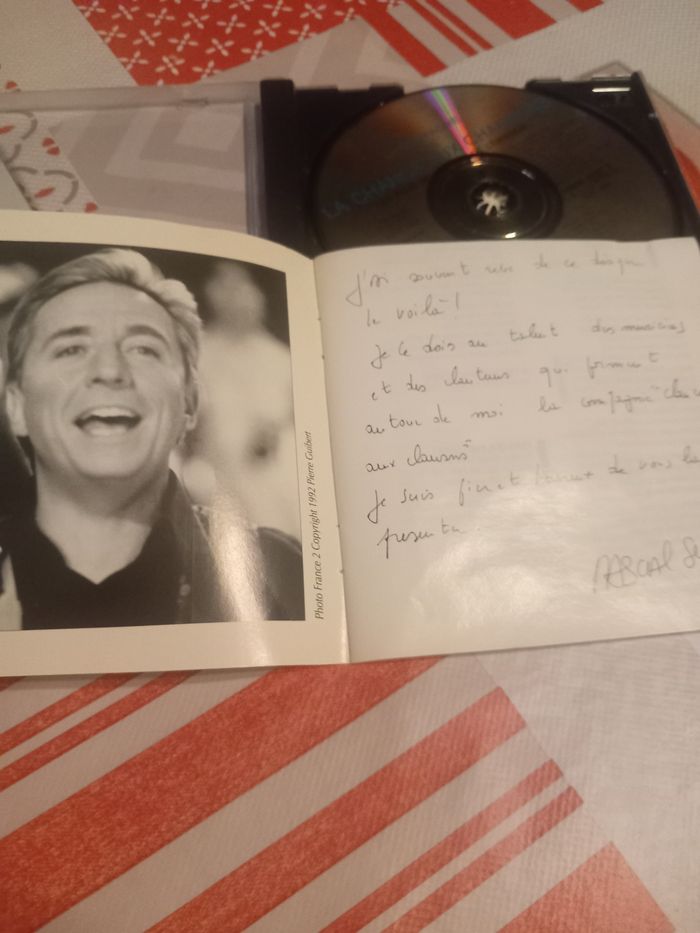 LA CHAN
Photo France 2 Copyright 1992 Pierre Guibert
J'ai souvent rêvé de ce disque
le voilà !
Je le dois au talent des musiciens
et des chanteurs qui forment
autour de moi la compagnie "chance
aux chansons"
Je suis fier et heureux de vous le
présenter
PASCAL Se